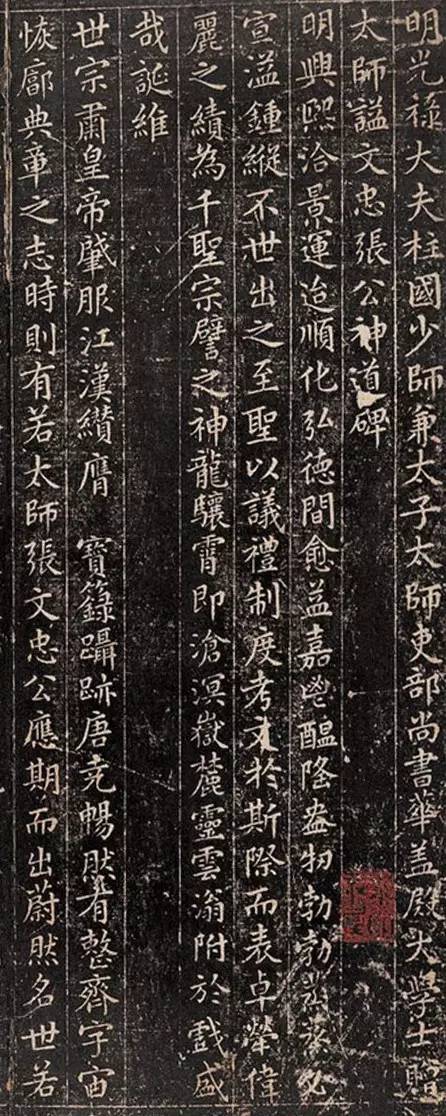 明光祿大夫柱國少師兼太子太師吏部尚書華盖殿大學士贈
太師謚文忠張公神道碑
明興熙洽景運迨順化弘德間愈益嘉鬯醖隆盎物勃勃
宣溢鍾縱不世出之至聖以議禮制度考文於斯際而表卓犖偉
麗之績為千聖宗譬之神龍驤霄即滄溟嶽麓靈雲滃附於戲盛
哉誕維
世宗肅皇帝肇服江漢纘膺 寶籙躡跡唐堯暢然有整齊宇宙
恢廓典章之志時則有若太師張文忠公應期而出蔚然名世若